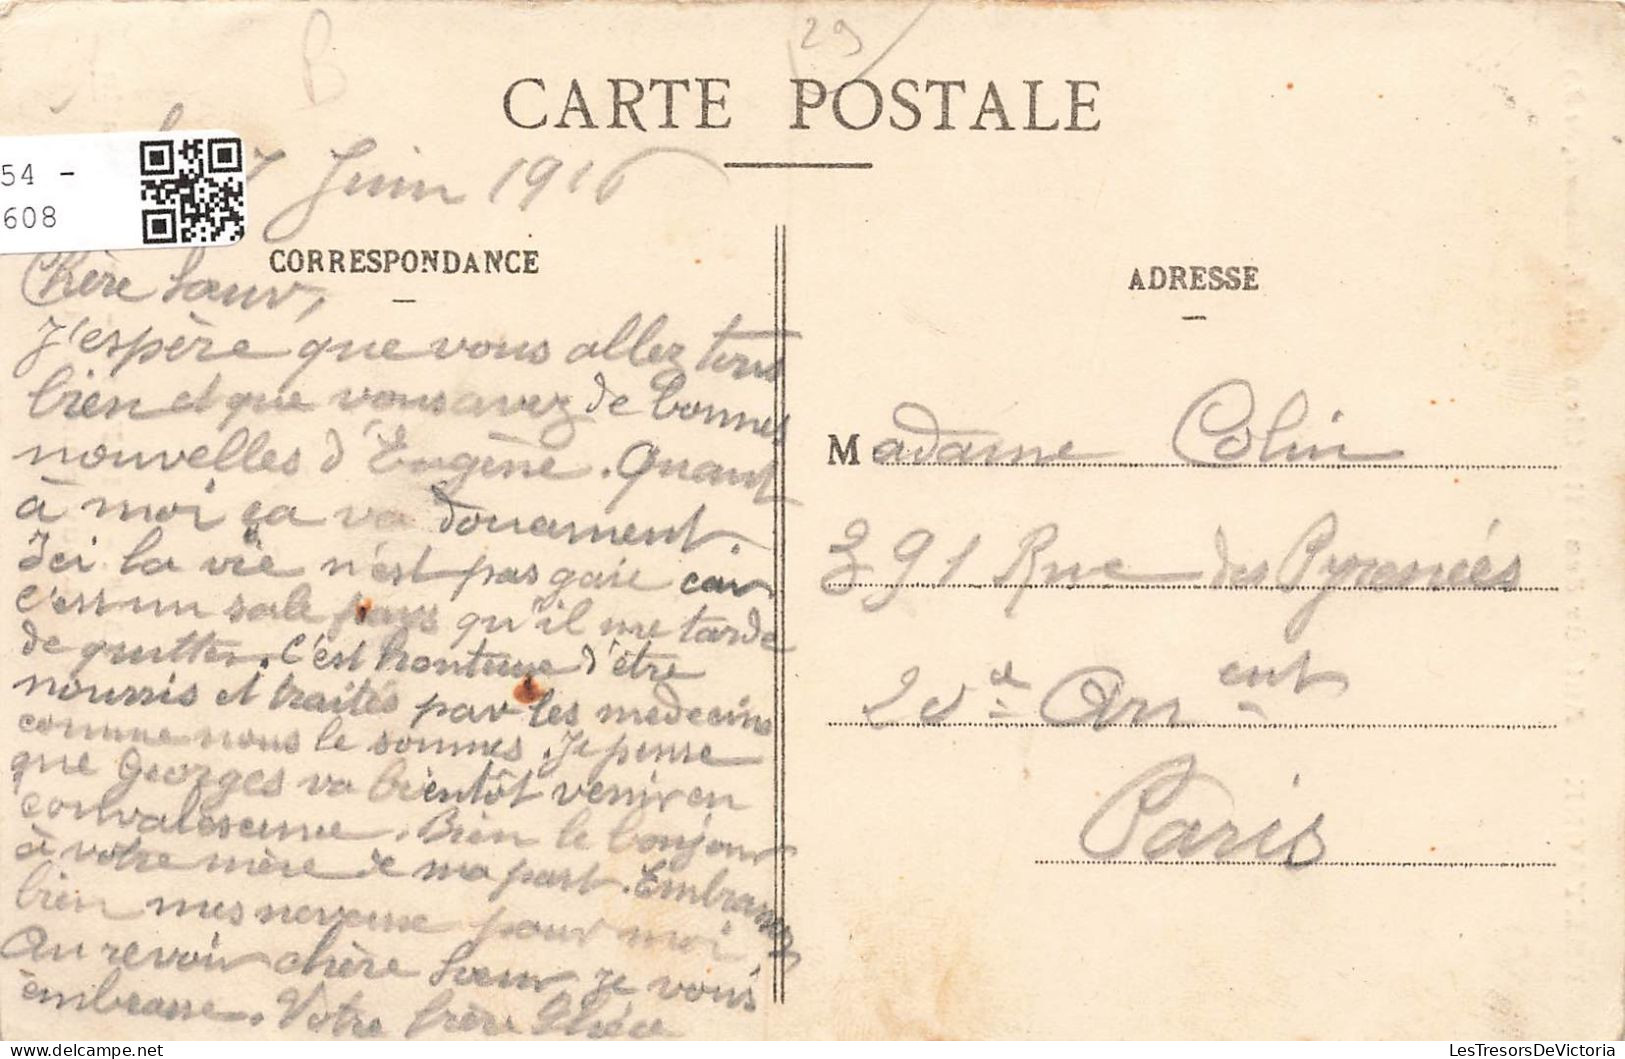 29
B
CARTE POSTALE
54 -
608
7 Juin 1916
CORRESPONDANCE
Chère Sœur,
J'espère que vous allez tous
bien et que vous avez de bonnes
nouvelles d'Eugène. Quant
à moi ça va doucement.
Ici la vie n'est pas gaie car
c'est un sale pays qu'il me tarde
de quitter. C'est honteux d'être
nourris et traités par les medecins
comme nous le sommes. Je pense
que Georges va bientôt venir en
convalescence. Bien le bonjour
à votre mère de ma part. Embrassez
bien mes neveux pour moi
Au revoir chère Sœur je vous
embrasse. Votre frère
ADRESSE
Madame Colin
391 Rue des Pyrénées
20d Arrent
Paris
LesTresorsDeVictoria